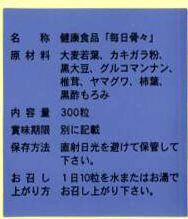 名称 健康食品「毎日骨々」
原材料 大麦若葉、カキガラ粉、
黒大豆、グルコマンナン、
椎茸、ヤマイワ、柿葉、
黒酢もろみ
内容量 300粒
賞味期限 別に記載
保存方法 直射日光を避けて保管して
下さい。
お召し 1日10粒を水またはお湯で
上がり方 お召し上がり下さい。